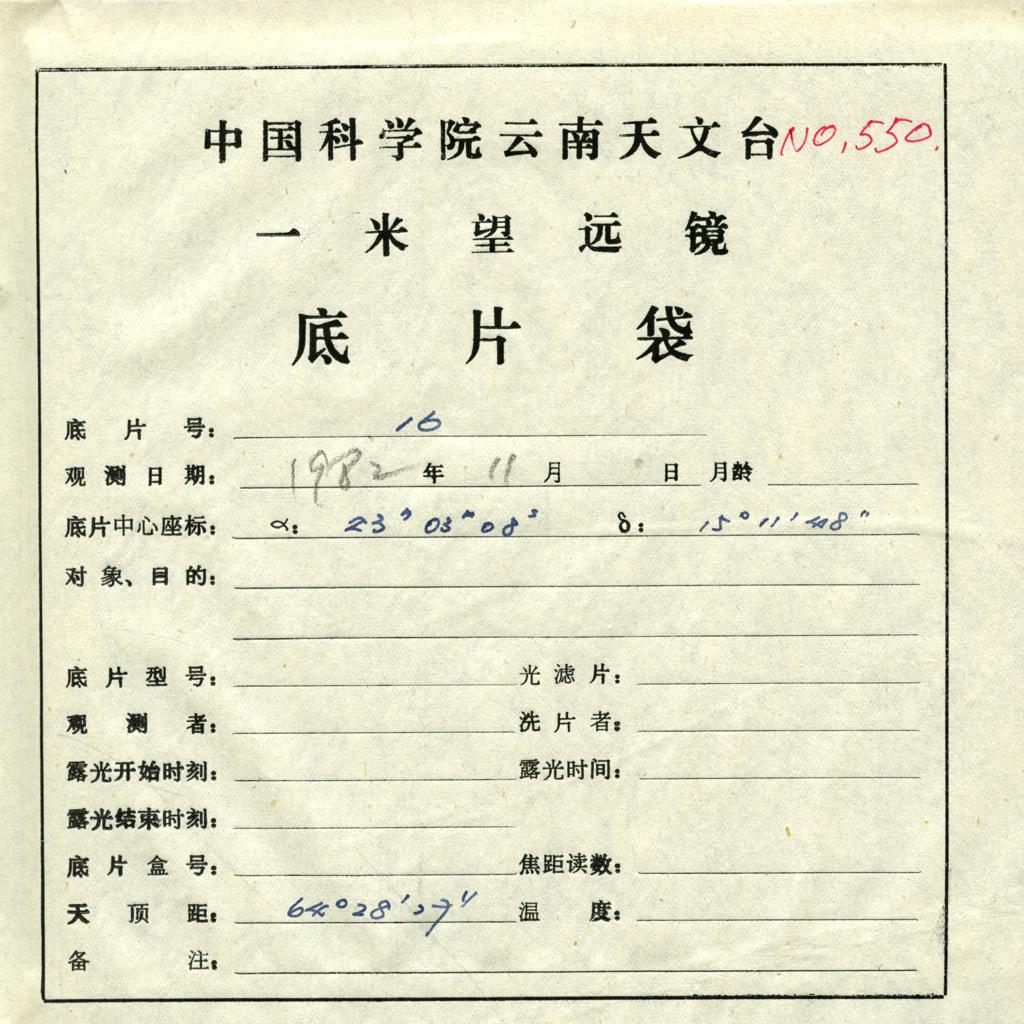 中国科学院云南天文台 NO.550.
一米望远镜
底片袋
底片号: 16
观测日期: 1982年 11月 日 月龄
底片中心座标: α: 23ʰ 03ᵐ 08ˢ δ: 15° 11′ 48″
对象、目的:
底片型号: 光滤片:
观测者: 洗片者:
露光开始时刻: 露光时间:
露光结束时刻:
底片盒号: 焦距读数:
天顶距: 64° 28′ 27″ 温度:
备注: